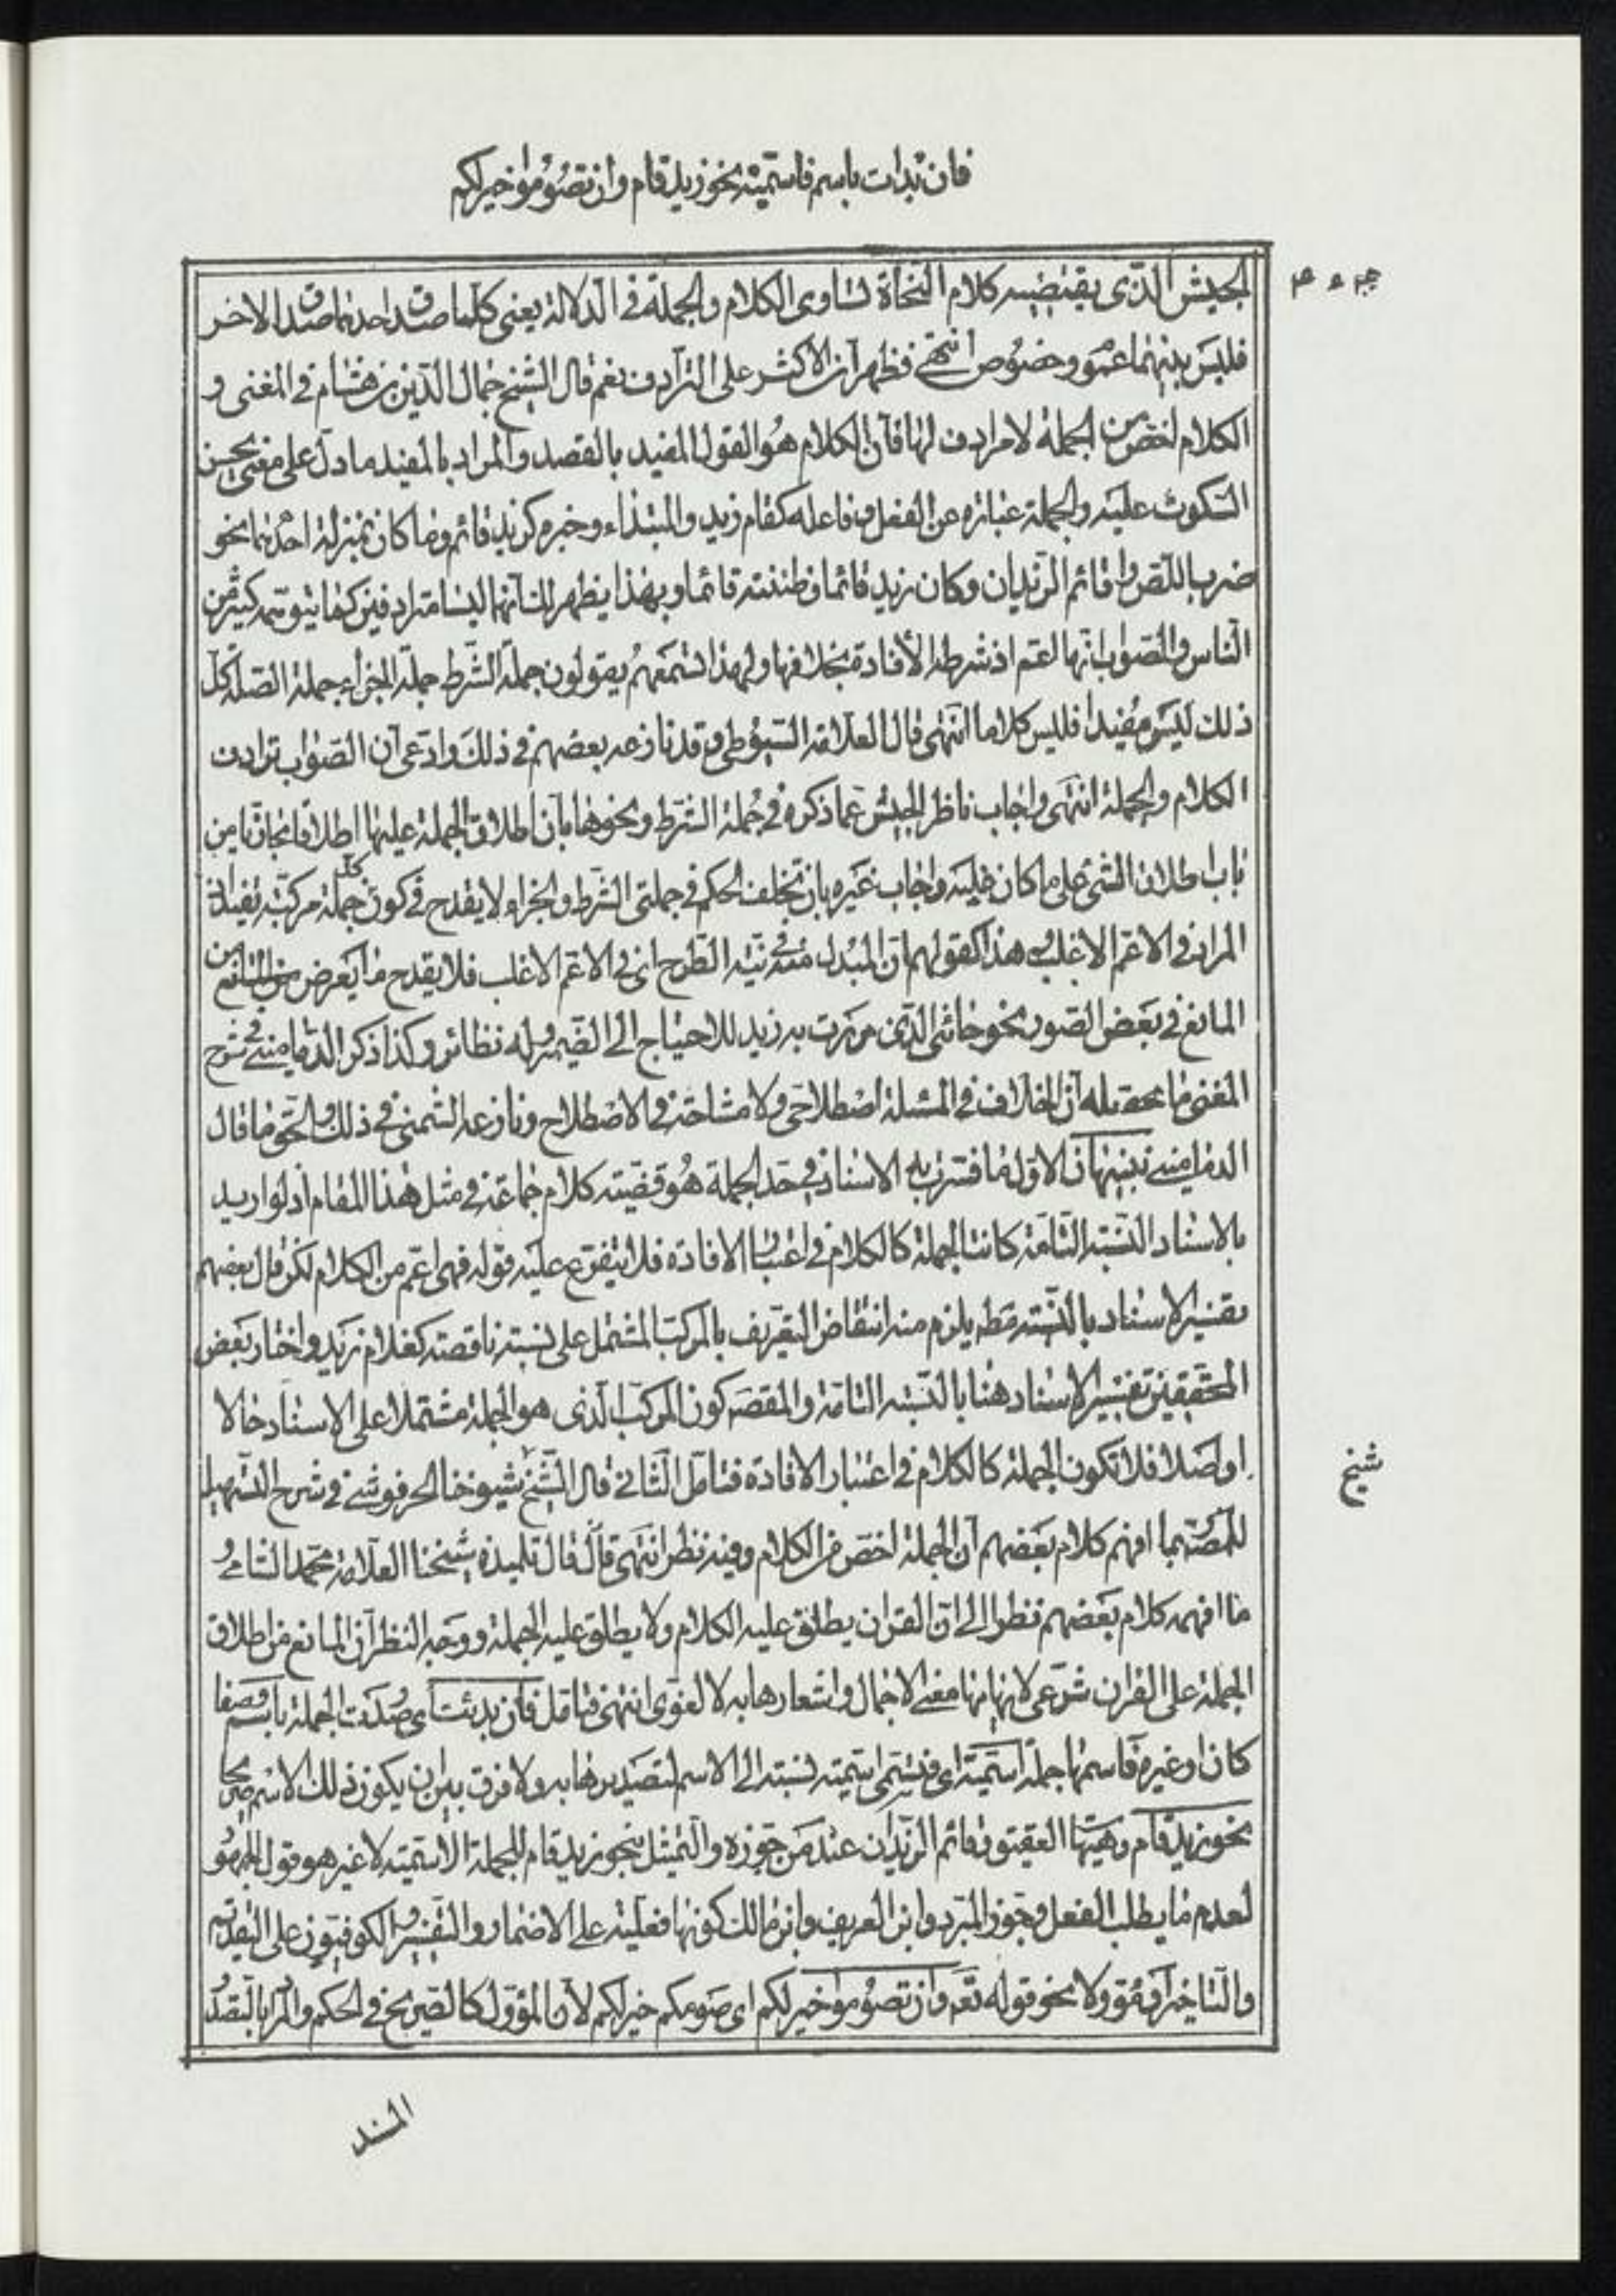 فان بدات باسم فاسمية نحو زيد قام وان تصوموا خير لكم
الجيش الذى يقتضيه كلام النحاة تساوى الكلام والجملة فى الدلالة يعنى كلما صدق احدهما صدق الاخر
فليس بينهما عموم وخصوص انتهى فظهر ان الاكثر على الترادف نعم قال الشيخ جمال الدين بن هشام فى المغنى و
الكلام اخص من الجملة لا مرادف لها فان الكلام هو القول المفيد بالقصد والمراد بالمفيد ما دل على معنى يحسن
السكوت عليه والجملة عبارة عن الفعل وفاعله كقام زيد والمبتداء وخبره كزيد قائم وما كان بمنزلة احدهما نحو
ضرب اللص واقائم الزيدان وكان زيد قائما وظننته قائما وبهذا يظهر لك انهما ليسا مترادفين كما يتوهمه كثير من
الناس والصواب انها اعم اذ شرطه الافادة بخلافها ولهذا تسمعهم يقولون جملة الشرط جملة الجزاء جملة الصلة وكل
ذلك ليس مفيدا فليس كلاما انتهى قال العلامة السيوطى وقد نازعه بعضهم فى ذلك وادعى ان الصواب ترادف
الكلام والجملة انتهى واجاب ناظر الجيش عما ذكره فى جملة الشرط ونحوها بان اطلاق الجملة عليها اطلاقا مجازيا من
باب اطلاق الشئ على ما كان عليه واجاب غيره بان تخلف الحكم فى جملتى الشرط والجزاء لا يقدح فى كون كل جملة مركبة تفيد اذ
المراد فى الاعم الاغلب وهذا كقولهم ان المبدل منه فى نية الطرح اى فى الاعم الاغلب فلا يقدح ما يعرض من
المانع فى بعض الصور نحو جائنى الذى مررت به زيد للاحتياج الى الضمير وله نظائر وكذا ذكر الدمامينى فى شرح
المغنى ما محصله ان الخلاف فى المسئلة اصطلاحى ولا مشاحة فى الاصطلاح ونازعه الشمنى فى ذلك والحق ما قال
الدمامينى تنبيهان الاول ما فسرنا به الاسناد فى حد الجملة هو قضية كلام جماعة فى مثل هذا المقام اذ لو اريد
بالاسناد النسبة التامة كانت الجملة كالكلام فى اعتبار الافادة فلا يتفرع عليه قوله فهى اعم من الكلام لكن قال بعضهم
تفسير الاسناد بالنسبة مطه يلزم منه انتقاض التعريف بالمركب المشتمل على نسبة ناقصة كغلام زيد واختار بعض
المحققين تفسير الاسناد هنا بالنسبة التامة والمقصود كون المركب الذى هو الجملة مشتملا على الاسناد حالا
او اصلا فلا تكون الجملة كالكلام فى اعتبار الافادة فتامل الثانى قال الشيخ شيوخنا الحرفوشى فى شرح التسهيل
للمصنف ربما افهم كلام بعضهم ان الجملة اخص من الكلام وفيه نظر انتهى قال تلميذه شيخنا العلامة محمد الشامى
ما افهمه كلام بعضهم نظرا الى ان القران يطلق عليه الكلام ولا يطلق عليه الجملة ووجه النظر ان المانع من اطلاق
الجملة على القران شرعى لايهامها معنى الاجمال واشعارها به لا لغوى انتهى فتامل فان بدئت اى صدرت الجملة باسم وصفا
كان او غيره فاسمها جملة اسمية اى فتسمى اسمية نسبة الى الاسم لتصديرها به ولا فرق بين ان يكون ذلك الاسم صريحا
نحو زيد قام وهيهات العقيق وقائم الزيدان عند من جوزه والتمثيل بنحو زيد قام للجملة الاسمية لا غير هو قول الجمهور
لعدم ما يطلب الفعل وجوز المبرد وابن العريف وابن مالك كونها فعلية على الاضمار والتفسير والكوفيون على التقديم
والتاخير او مؤولا نحو قوله تعم وان تصوموا خير لكم اى صومكم خير لكم لان المؤول كالصريح فى الحكم والمراد بالتصدر
شيخ
المسند